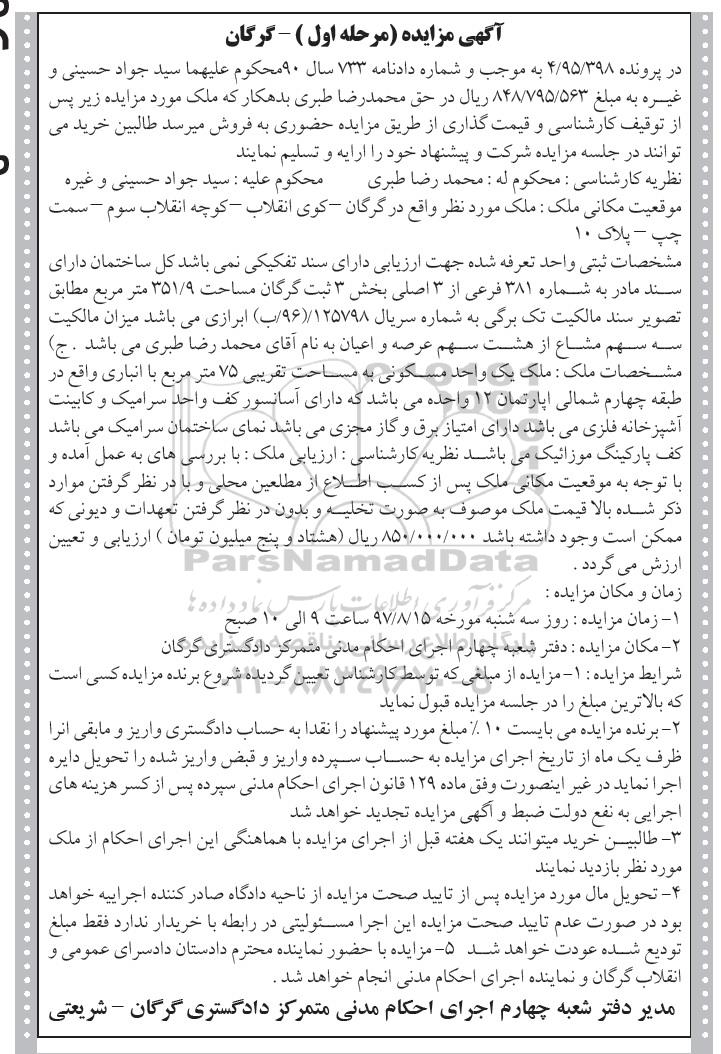 آگهی مزایده (مرحله اول ) – گرگان
در پرونده ۴/۹۵/۳۹۸ به موجب و شماره دادنامه ۷۳۳ سال ۹۰محکوم علیهما سید جواد حسینی و
غیره به مبلغ ۸۴۸/۷۹۵/۵۶۳ ریال در حق محمدرضا طبری بدهکار که ملک مورد مزایده زیر پس
از توقیف کارشناسی و قیمت گذاری از طریق مزایده حضوری به فروش میرسد طالبین خرید می
توانند در جلسه مزایده شرکت و پیشنهاد خود را ارایه و تسلیم نمایند
نظریه کارشناسی : محکوم له : محمد رضا طبری محکوم علیه : سید جواد حسینی و غیره
موقعیت مکانی ملک : ملک مورد نظر واقع در گرگان –کوی انقلاب –کوچه انقلاب سوم –سمت
چپ – پلاک ۱۰
مشخصات ثبتی واحد تعرفه شده جهت ارزیابی دارای سند تفکیکی نمی باشد کل ساختمان دارای
سند مادر به شماره ۳۸۱ فرعی از ۳ اصلی بخش ۳ ثبت گرگان مساحت ۳۵۱/۹ متر مربع مطابق
تصویر سند مالکیت تک برگی به شماره سریال ۱۲۵۷۹۸/(۹۶/ب) ابرازی می باشد میزان مالکیت
سه سهم مشاع از هشت سهم عرصه و اعیان به نام آقای محمد رضا طبری می باشد . ج)
مشخصات ملک : ملک یک واحد مسکونی به مساحت تقریبی ۷۵ متر مربع با انباری واقع در
طبقه چهارم شمالی اپارتمان ۱۲ واحده می باشد که دارای آسانسور کف واحد سرامیک و کابینت
آشپزخانه فلزی می باشد دارای امتیاز برق و گاز مجزی می باشد نمای ساختمان سرامیک می باشد
کف پارکینگ موزائیک می باشد نظریه کارشناسی : ارزیابی ملک : با بررسی های به عمل آمده و
با توجه به موقعیت مکانی ملک پس از کسب اطلاع از مطلعین محلی و با در نظر گرفتن موارد
ذکر شده بالا قیمت ملک موصوف به صورت تخلیه و بدون در نظر گرفتن تعهدات و دیونی که
ممکن است وجود داشته باشد ۸۵۰/۰۰۰/۰۰۰ ریال (هشتاد و پنج میلیون تومان ) ارزیابی و تعیین
ارزش می گردد .
ParsNamadData
زمان و مکان مزایده :
۱- زمان مزایده : روز سه شنبه مورخه ۹۷/۸/۱۵ ساعت ۹ الی ۱۰ صبح
۲- مکان مزایده : دفتر شعبه چهارم اجرای احکام مدنی متمرکز دادگستری گرگان
شرایط مزایده : ۱- مزایده از مبلغی که توسط کارشناس تعیین گردیده شروع برنده مزایده کسی است
که بالاترین مبلغ را در جلسه مزایده قبول نماید
۲- برنده مزایده می بایست ۱۰ ٪ مبلغ مورد پیشنهاد را نقدا به حساب دادگستری واریز و مابقی انرا
ظرف یک ماه از تاریخ اجرای مزایده به حساب سپرده واریز و قبض واریز شده را تحویل دایره
اجرا نماید در غیر اینصورت وفق ماده ۱۲۹ قانون اجرای احکام مدنی سپرده پس از کسر هزینه های
اجرایی به نفع دولت ضبط و آگهی مزایده تجدید خواهد شد
۳- طالبین خرید میتوانند یک هفته قبل از اجرای مزایده با هماهنگی این اجرای احکام از ملک
مورد نظر بازدید نمایند
۴- تحویل مال مورد مزایده پس از تایید صحت مزایده از ناحیه دادگاه صادر کننده اجراییه خواهد
بود در صورت عدم تایید صحت مزایده این اجرا مسئولیتی در رابطه با خریدار ندارد فقط مبلغ
تودیع شده عودت خواهد شد ۵- مزایده با حضور نماینده محترم دادستان دادسرای عمومی و
انقلاب گرگان و نماینده اجرای احکام مدنی انجام خواهد شد .
مدیر دفتر شعبه چهارم اجرای احکام مدنی متمرکز دادگستری گرگان – شریعتی